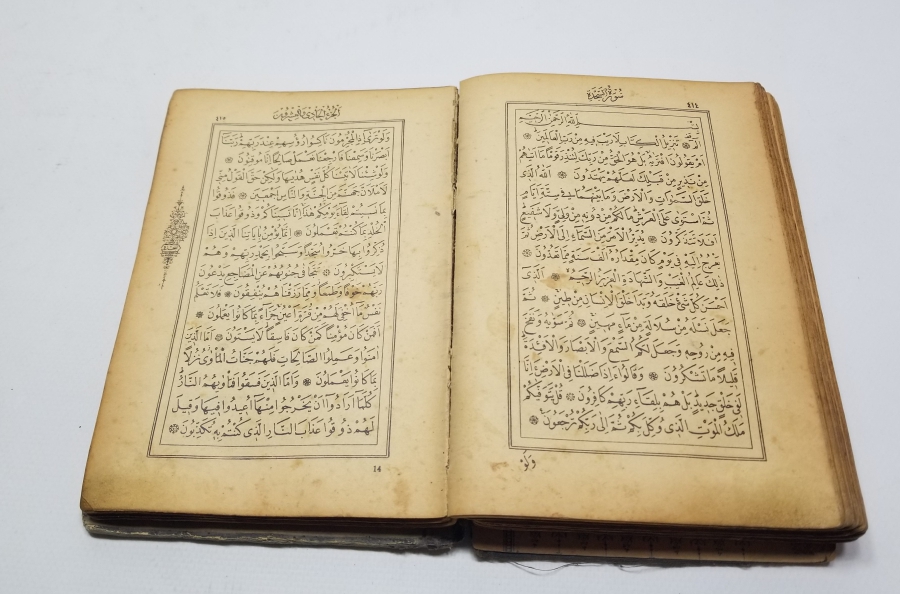 سُورَةُ السَّجْدَةِ ٤١٤
بِسْمِ اللّٰهِ الرَّحْمٰنِ الرَّحِيمِ
الٓمٓ تَنْزِيلُ الْكِتَابِ لَا رَيْبَ فِيهِ مِنْ رَبِّ الْعَالَمِينَ
اَمْ يَقُولُونَ افْتَرٰيهُ بَلْ هُوَ الْحَقُّ مِنْ رَبِّكَ لِتُنْذِرَ قَوْمًا مَا اَتٰيهُمْ
مِنْ نَذِيرٍ مِنْ قَبْلِكَ لَعَلَّهُمْ يَهْتَدُونَ اَللّٰهُ الَّذِي
خَلَقَ السَّمٰوَاتِ وَالْاَرْضَ وَمَا بَيْنَهُمَا فِي سِتَّةِ اَيَّامٍ
ثُمَّ اسْتَوٰى عَلَى الْعَرْشِ مَا لَكُمْ مِنْ دُونِهِ مِنْ وَلِيٍّ وَلَا شَفِيعٍ
اَفَلَا تَتَذَكَّرُونَ يُدَبِّرُ الْاَمْرَ مِنَ السَّمَاءِ اِلَى الْاَرْضِ ثُمَّ
يَعْرُجُ اِلَيْهِ فِي يَوْمٍ كَانَ مِقْدَارُهُ اَلْفَ سَنَةٍ مِمَّا تَعُدُّونَ
ذٰلِكَ عَالِمُ الْغَيْبِ وَالشَّهَادَةِ الْعَزِيزُ الرَّحِيمُ اَلَّذِي
اَحْسَنَ كُلَّ شَيْءٍ خَلَقَهُ وَبَدَاَ خَلْقَ الْاِنْسَانِ مِنْ طِينٍ ثُمَّ
جَعَلَ نَسْلَهُ مِنْ سُلَالَةٍ مِنْ مَاءٍ مَهِينٍ ثُمَّ سَوّٰيهُ وَنَفَخَ
فِيهِ مِنْ رُوحِهِ وَجَعَلَ لَكُمُ السَّمْعَ وَالْاَبْصَارَ وَالْاَفْئِدَةَ
قَلِيلًا مَا تَشْكُرُونَ وَقَالُوا ءَاِذَا ضَلَلْنَا فِي الْاَرْضِ ءَاِنَّا
لَفِي خَلْقٍ جَدِيدٍ بَلْ هُمْ بِلِقَاءِ رَبِّهِمْ كَافِرُونَ قُلْ يَتَوَفّٰيكُمْ
مَلَكُ الْمَوْتِ الَّذِي وُكِّلَ بِكُمْ ثُمَّ اِلٰى رَبِّكُمْ تُرْجَعُونَ
وَلَوْ
اَلْجُزْءُ الْحَادِي وَالْعِشْرُونَ ٤١٥
وَلَوْ تَرٰى اِذِ الْمُجْرِمُونَ نَاكِسُوا رُؤُسِهِمْ عِنْدَ رَبِّهِمْ رَبَّنَا
اَبْصَرْنَا وَسَمِعْنَا فَارْجِعْنَا نَعْمَلْ صَالِحًا اِنَّا مُوقِنُونَ
وَلَوْ شِئْنَا لَاٰتَيْنَا كُلَّ نَفْسٍ هُدٰيهَا وَلٰكِنْ حَقَّ الْقَوْلُ مِنِّي
لَاَمْلَاَنَّ جَهَنَّمَ مِنَ الْجِنَّةِ وَالنَّاسِ اَجْمَعِينَ فَذُوقُوا
بِمَا نَسِيتُمْ لِقَاءَ يَوْمِكُمْ هٰذَا اِنَّا نَسِينَاكُمْ وَذُوقُوا عَذَابَ
الْخُلْدِ بِمَا كُنْتُمْ تَعْمَلُونَ اِنَّمَا يُؤْمِنُ بِاٰيَاتِنَا الَّذِينَ اِذَا
ذُكِّرُوا بِهَا خَرُّوا سُجَّدًا وَسَبَّحُوا بِحَمْدِ رَبِّهِمْ وَهُمْ
لَا يَسْتَكْبِرُونَ تَتَجَافٰى جُنُوبُهُمْ عَنِ الْمَضَاجِعِ يَدْعُونَ
رَبَّهُمْ خَوْفًا وَطَمَعًا وَمِمَّا رَزَقْنَاهُمْ يُنْفِقُونَ فَلَا تَعْلَمُ
نَفْسٌ مَا اُخْفِيَ لَهُمْ مِنْ قُرَّةِ اَعْيُنٍ جَزَاءً بِمَا كَانُوا يَعْمَلُونَ
اَفَمَنْ كَانَ مُؤْمِنًا كَمَنْ كَانَ فَاسِقًا لَا يَسْتَوُونَ اَمَّا الَّذِينَ
اٰمَنُوا وَعَمِلُوا الصَّالِحَاتِ فَلَهُمْ جَنَّاتُ الْمَاْوٰى نُزُلًا
بِمَا كَانُوا يَعْمَلُونَ وَاَمَّا الَّذِينَ فَسَقُوا فَمَاْوٰيهُمُ النَّارُ
كُلَّمَا اَرَادُوا اَنْ يَخْرُجُوا مِنْهَا اُعِيدُوا فِيهَا وَقِيلَ
لَهُمْ ذُوقُوا عَذَابَ النَّارِ الَّذِي كُنْتُمْ بِهِ تُكَذِّبُونَ
14